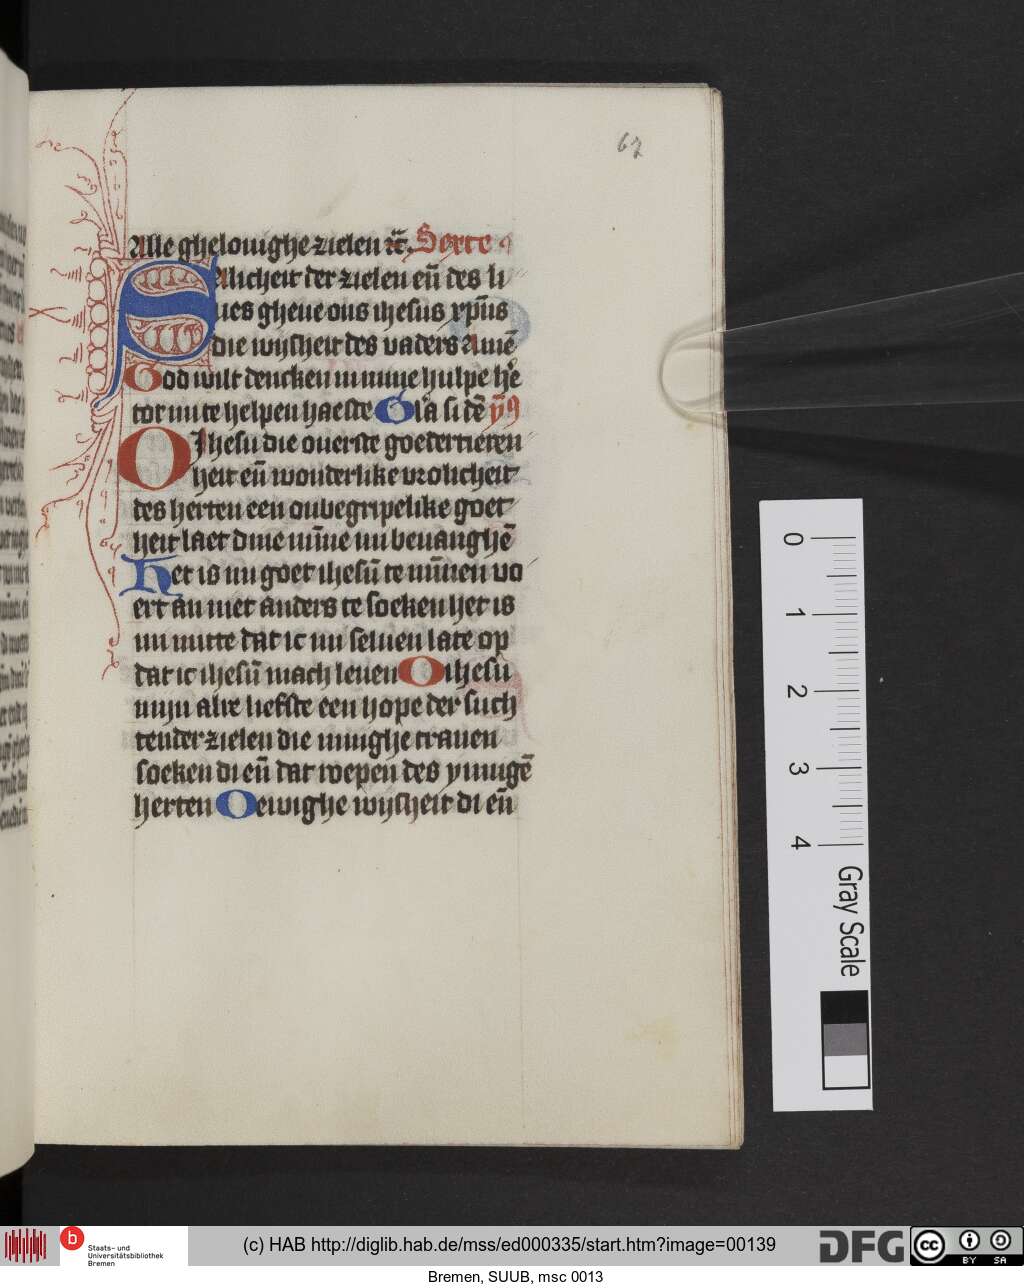 67
Alle ghelouighe zielen ⁊c̄. Sexte
SAlicheit der zielen en̄ des li
ues gheue ons ihesus xp̄us
die wijsheit des vaders Amē
God wilt dencken in mijne hulpe hē
tor mi te helpen haeste Gl̄a si dē ỹ9
O Jhesu die ouerste goedertieren
heit en̄ wonderlike vrolicheit
des herten een onbegripelike goet
heit laet dine min̄e mi beuanghē
Het is mi goet ihesū te min̄en vo
ert an niet anders te soeken het is
mi nutte dat ic mi seluen late op
dat ic ihesū mach leuen O ihesu
mijn alre liefste een hope der such
tender zielen die innighe tranen
soeken di en̄ dat roepen des ynnigē
herten O ewighe wijsheit di en̄
0
1
2
3
4
Gray Scale
b
Staats- und
Universitätsbibliothek
Bremen
(c) HAB http://diglib.hab.de/mss/ed000335/start.htm?image=00139
DFG
cc
BY SA
Bremen, SUUB, msc 0013